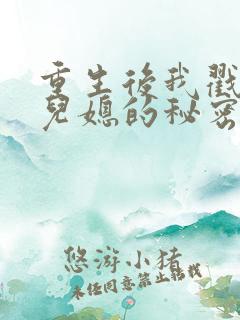 重生後我戳
兒媳的秘密
悠游小猪
未经同意禁止转载